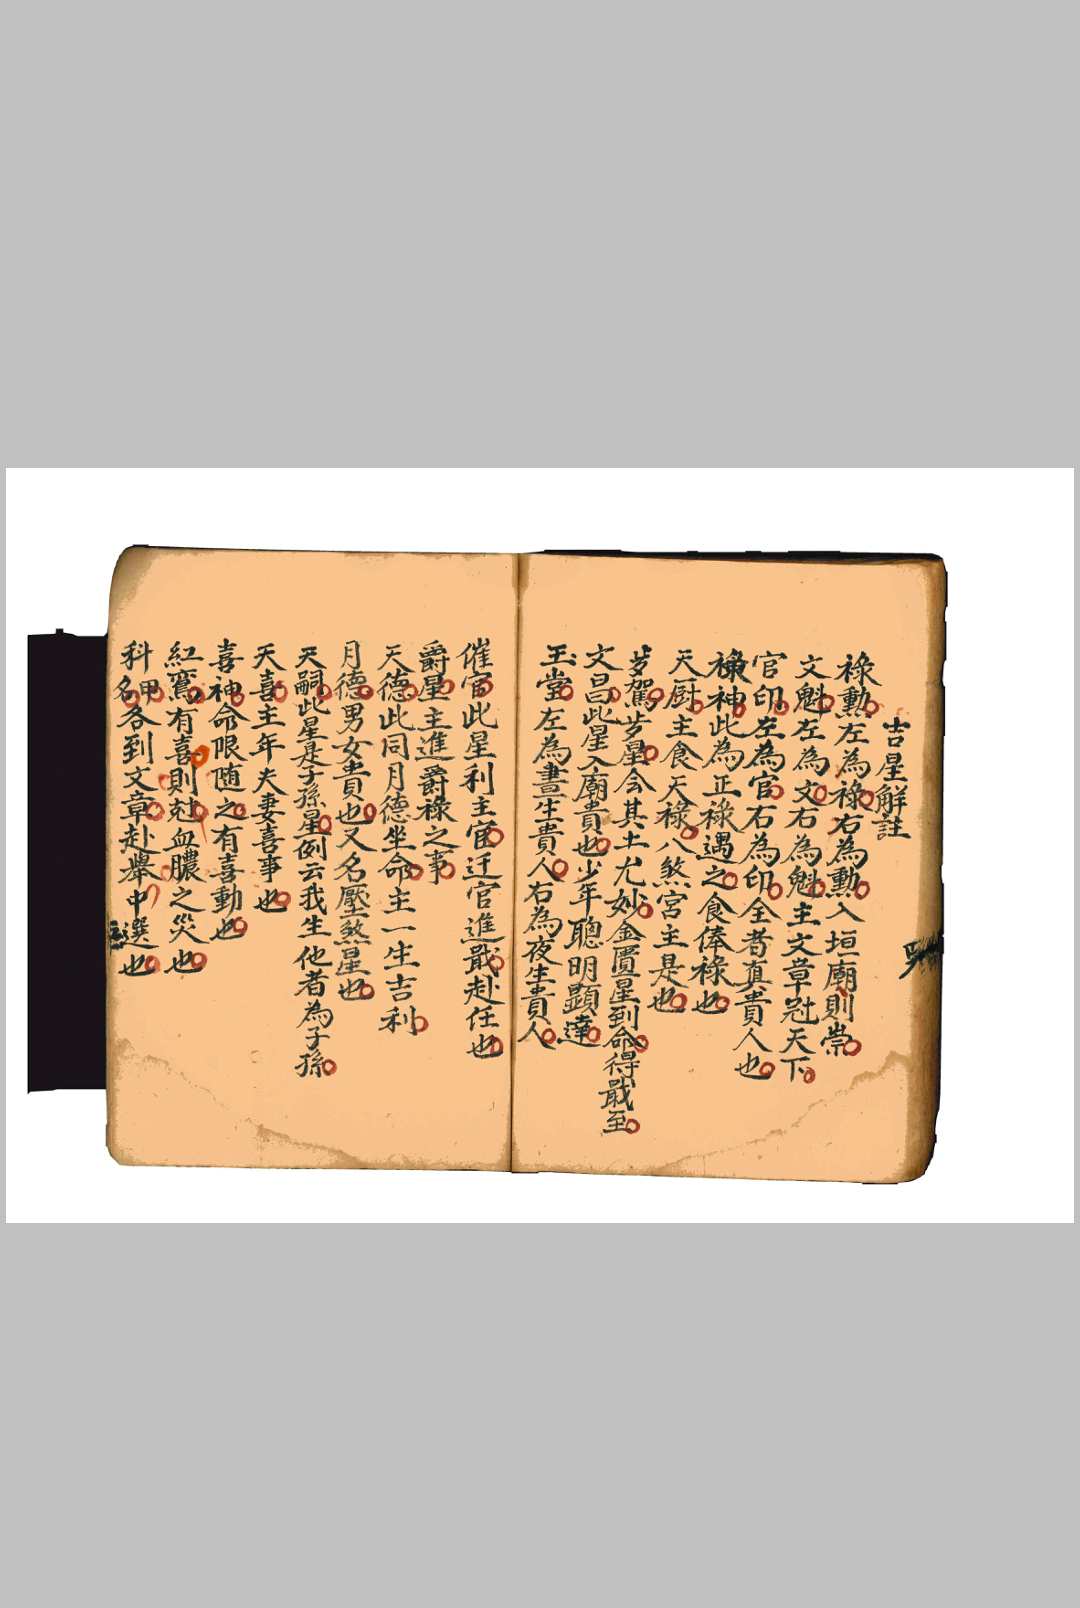 吉星解註
祿勳左為祿右為勳入垣廟則崇
文魁左為文右為魁主文章尅天下
官印左為官右為印全者真貴人也
祿神此為正祿遇之食俸祿也
天厨主食天祿八煞宮主是也
步駕步星会其土尤妙金匱星到命得戢至
文昌此星入廟貴也少年聰明顕達
玉堂左為晝生貴人右為夜生貴人
催官此星利主官迁官進戢赴任也
爵星主進爵祿之事
天德此同月德坐命主一生吉利
月德男女貴也又名壓煞星也
天嗣此星是子孫星例云我生他者為子孫
天喜主年夫妻喜事也
喜神命限随之有喜動也
紅鸞有喜則尅血膿之災也
科甲名各到文章赴舉中選也